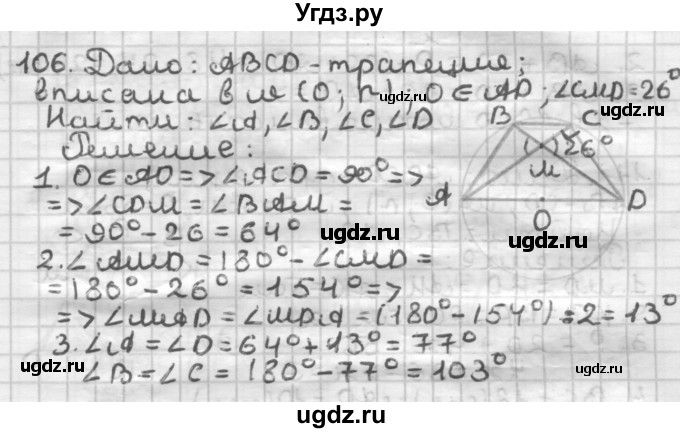 Угдз.ру
106. Дано: ABCD - трапеция;
вписана в (O; r); O ∈ AD; ∠CMD = 26°
Найти: ∠A, ∠B, ∠C, ∠D
Решение:
B C
26°
M
A D
O
1. O ∈ AD => ∠ACD = 90° =>
=> ∠CDM = ∠BAM =
= 90° - 26 = 64°
2. ∠AMD = 180° - ∠CMD =
= 180° - 26° = 154° =>
=> ∠MAD = ∠MDA = (180° - 154°) : 2 = 13°
3. ∠A = ∠D = 64° + 13° = 77°
∠B = ∠C = 180° - 77° = 103°
ugdz.ru
ugdz.ru
ugdz.ru
ugdz.ru
ugdz.ru
ugdz.ru
ugdz.ru
ugdz.ru
ugdz.ru